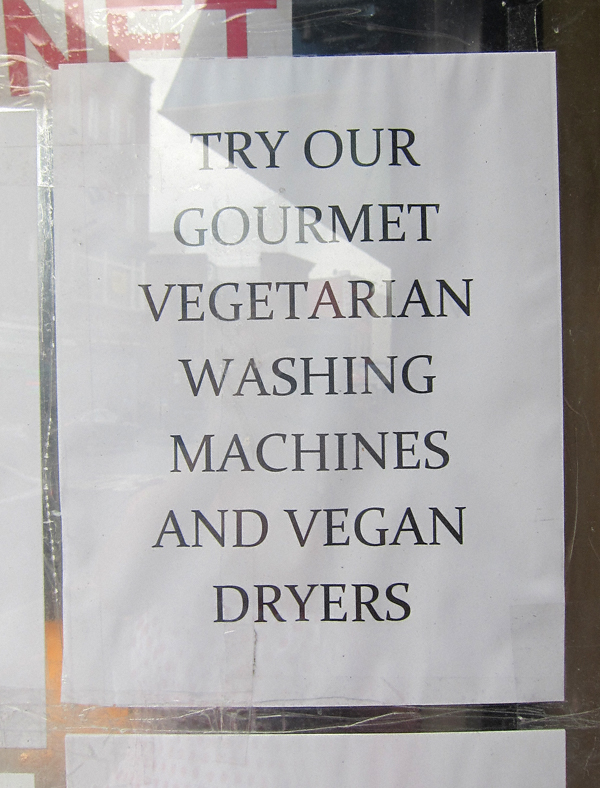 NET
TRY OUR
GOURMET
VEGETARIAN
WASHING
MACHINES
AND VEGAN
DRYERS